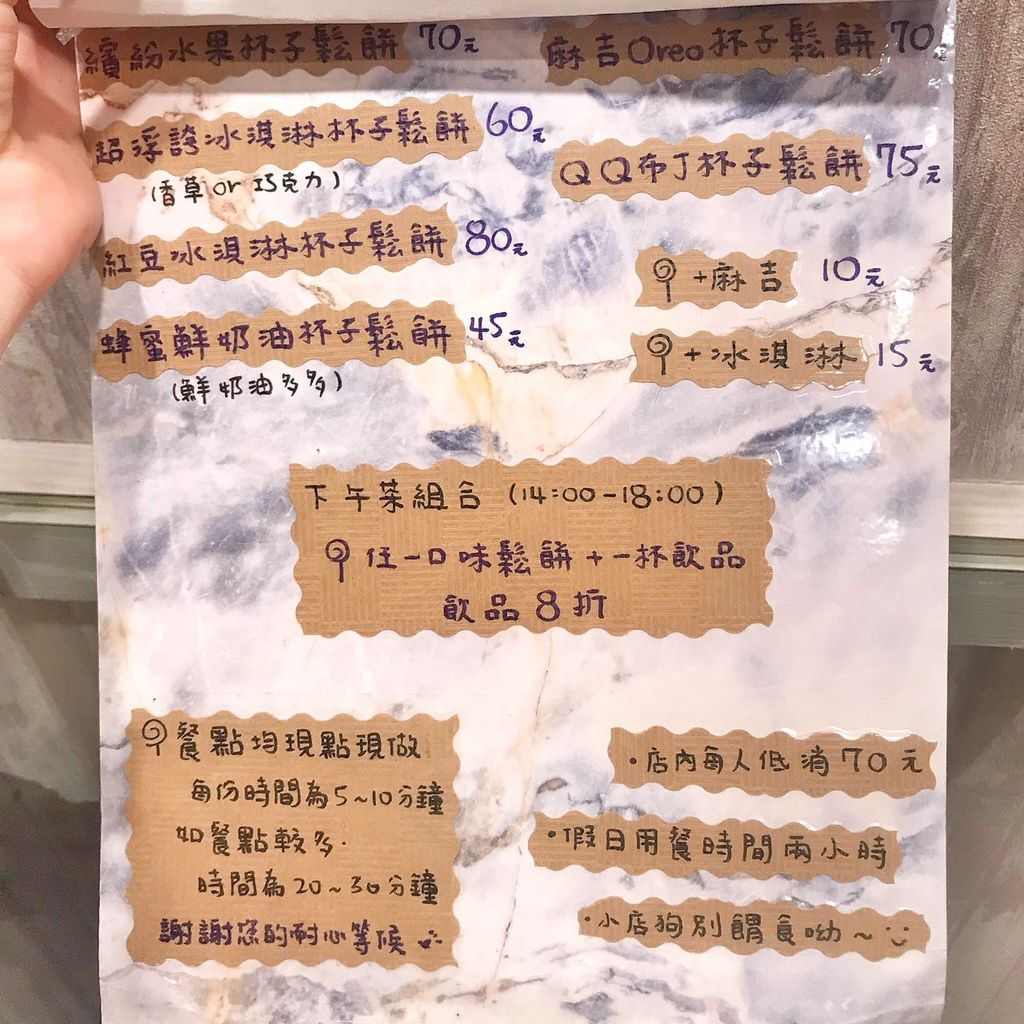 繽紛水果杯子鬆餅 70元
超浮誇冰淇淋杯子鬆餅 60元
(香草or巧克力)
紅豆冰淇淋杯子鬆餅 80元
蜂蜜鮮奶油杯子鬆餅 45元
(鮮奶油多多)
麻吉Oreo杯子鬆餅 70元
QQ布丁杯子鬆餅 75元
+麻吉 10元
+冰淇淋 15元
下午茶組合 (14:00-18:00)
任一口味鬆餅+一杯飲品
飲品8折
餐點均現點現做
每份時間為5~10分鐘
如餐點較多.
時間為20~30分鐘
謝謝您的耐心等候
·店內每人低消70元
·假日用餐時間兩小時
·小店狗別餵食呦~